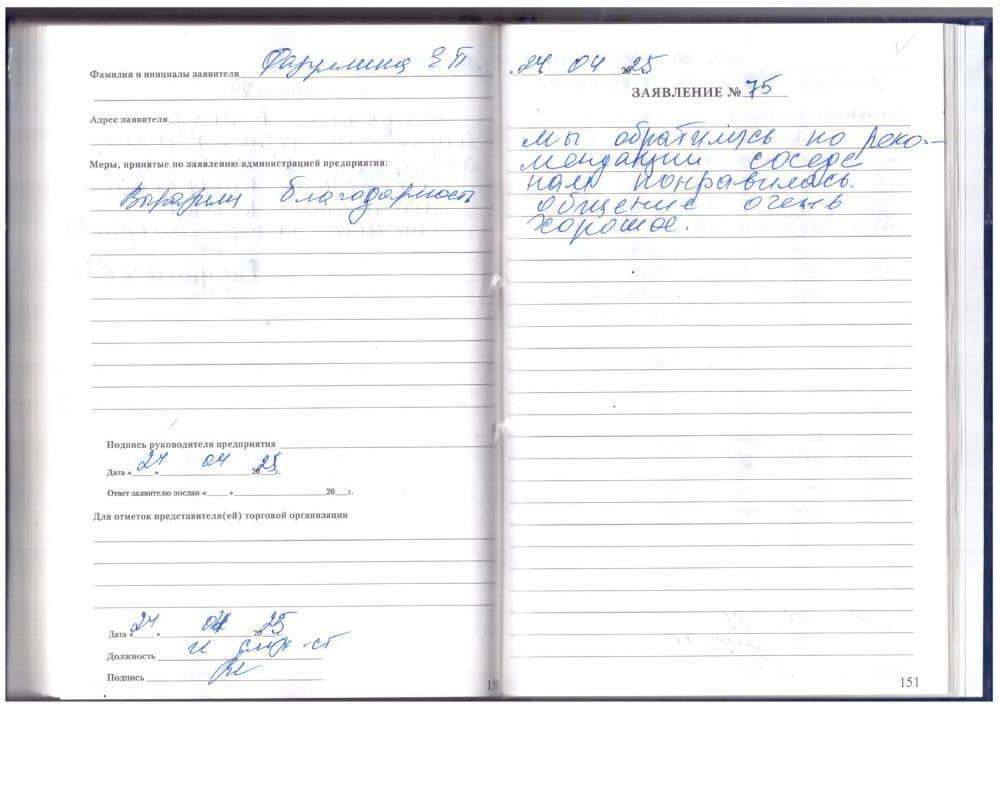 Фамилия и инициалы заявителя Е П
Адрес заявителя
Меры, принятые по заявлению администрацией предприятия:
Выразили благодарность
Подпись руководителя предприятия
Дата « 24 » 04 2025 г.
Ответ заявителю послан « » 20 г.
Для отметок представителя(ей) торговой организации
Дата « 24 » 04 2025
Должность
Подпись
24 04 2025
ЗАЯВЛЕНИЕ № 75
Мы обратились по реко-
мендации соседе
нам понравилась.
общение очень
хорошое.
151